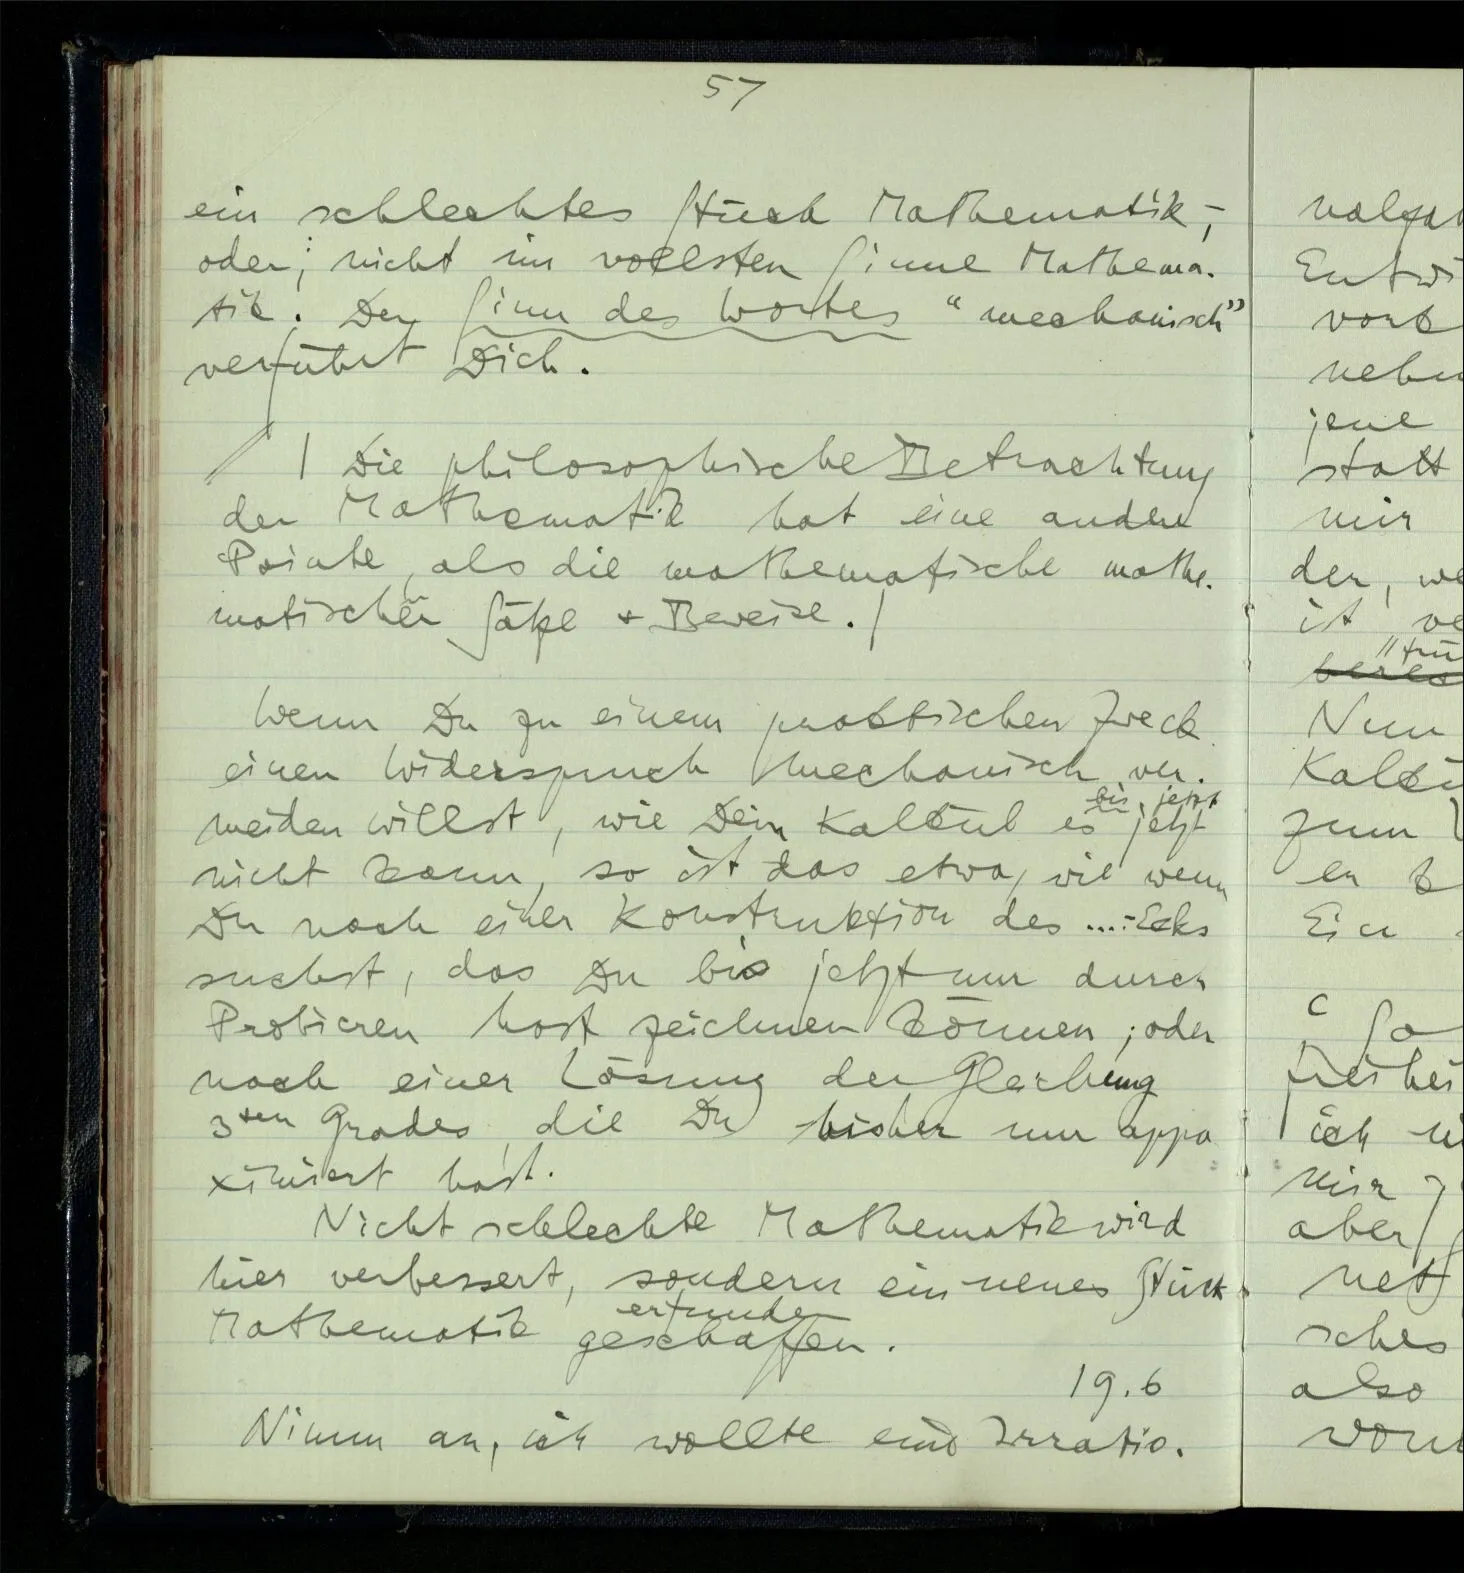 57
ein schlechtes Stück Mathematik,–
oder; nicht im vollsten Sinne Mathema-
tik. Der Sinn des Wortes “mechanisch”
verführt Dich.
/ | Die philosophische Betrachtung
der Mathematik hat eine andere
Pointe, als die mathematische mathe-
matischer Sätze + Beweise. |
Wenn Du zu einem praktischen Zweck
einen Widerspruch mechanisch ver-
bis jetzt
meiden willst, wie Dein Kalkül es jetzt
nicht kann, so ist das etwa, wie wenn
Du nach einer Konstruktion des ...-Ecks
suchst, das Du bis jetzt nur durch
Probieren hast zeichnen können; oder
nach einer Lösung der Gleichung
3ten Grades, die Du bisher nur appro
ximiert hast.
Nicht schlechte Mathematik wird
hier verbessert, sondern ein neues Stück
erfunden
Mathematik geschaffen.
19.6
Nimm an, ich wollte eine Irratio-
Entwi
jene
statt
mir
der, we
ist ve
Nun
Kalkü
zum
er k
Ein
C So
ich ni
mir z
aber
net
sches
also